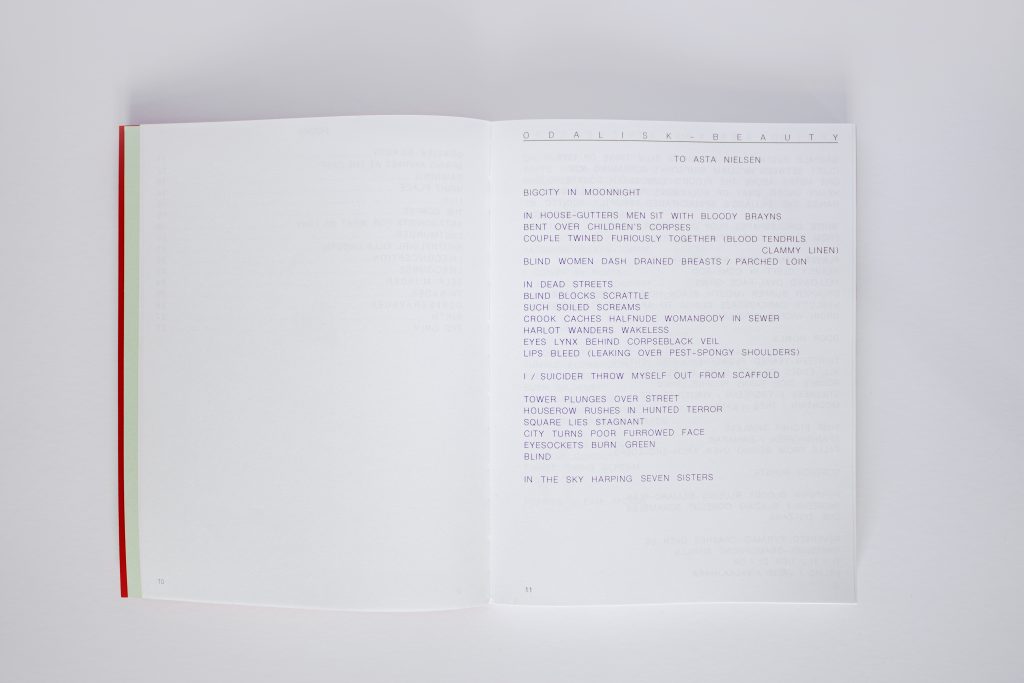 ODALISK-BEAUTY
TO ASTA NIELSEN
BIGCITY IN MOONNIGHT
IN HOUSE-GUTTERS MEN SIT WITH BLOODY BRAYNS
BENT OVER CHILDREN'S CORPSES
COUPLE TWINED FURIOUSLY TOGETHER (BLOOD TENDRILS
CLAMMY LINEN)
BLIND WOMEN DASH DRAINED BREASTS / PARCHED LOIN
IN DEAD STREETS
BLIND BLOCKS SCRATTLE
SUCH SOILED SCREAMS
CROOK CACHES HALFNUDE WOMANBODY IN SEWER
HARLOT WANDERS WAKELESS
EYES LYNX BEHIND CORPSEBLACK VEIL
LIPS BLEED (LEAKING OVER PEST-SPONGY SHOULDERS)
I / SUICIDER THROW MYSELF OUT FROM SCAFFOLD
TOWER PLUNGES OVER STREET
HOUSEROW RUSHES IN HUNTED TERROR
SQUARE LIES STAGNANT
CITY TURNS POOR FURROWED FACE
EYESOCKETS BURN GREEN
BLIND
IN THE SKY HARPING SEVEN SISTERS
10
11